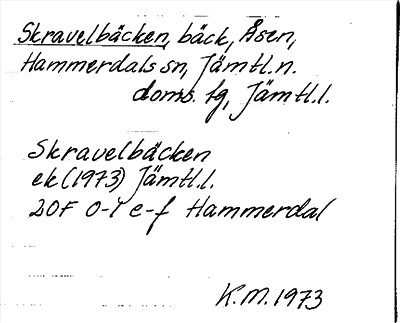 Skravelbäcken, bäck, Åsen,
Hammerdals sn, Jämtl.n.
doms. tg, Jämtl.l.
Skravelbäcken
ek (1973) Jämtl.l.
20F 0-1 e-f Hammerdal
K.M. 1973